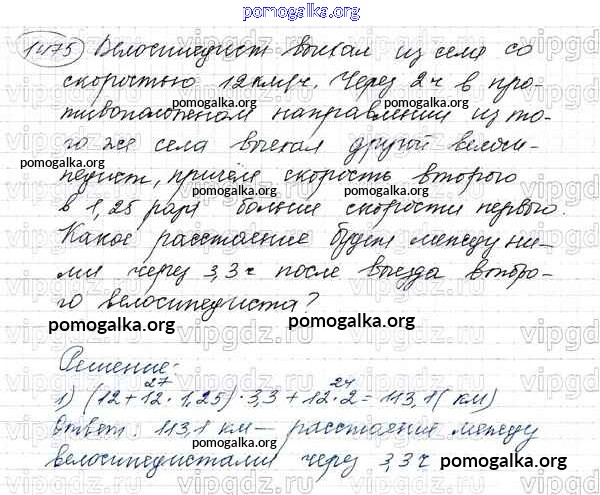 pomogalka.org
1475 Велосипедист выехал из села со
скоростью 12 км/ч. Через 2 ч в про-
pomogalka.org pomogalka.org
тивоположном направлении из то-
го же села выехал другой велоси-
pomogalka.org
педист, причём скорость второго
pomogalka.org pomogalka.org
в 1,25 раза больше скорости первого.
Какое расстояние будет между ни-
ми через 3,3 ч после выезда второ-
го велосипедиста?
pomogalka.org pomogalka.org
Решение:
27 24
1) (12+12·1,25)·3,3+12·2=113,1(км)
Ответ: 113,1 км — расстояние между
pomogalka.org
велосипедистами через 3,3ч
pomogalka.org